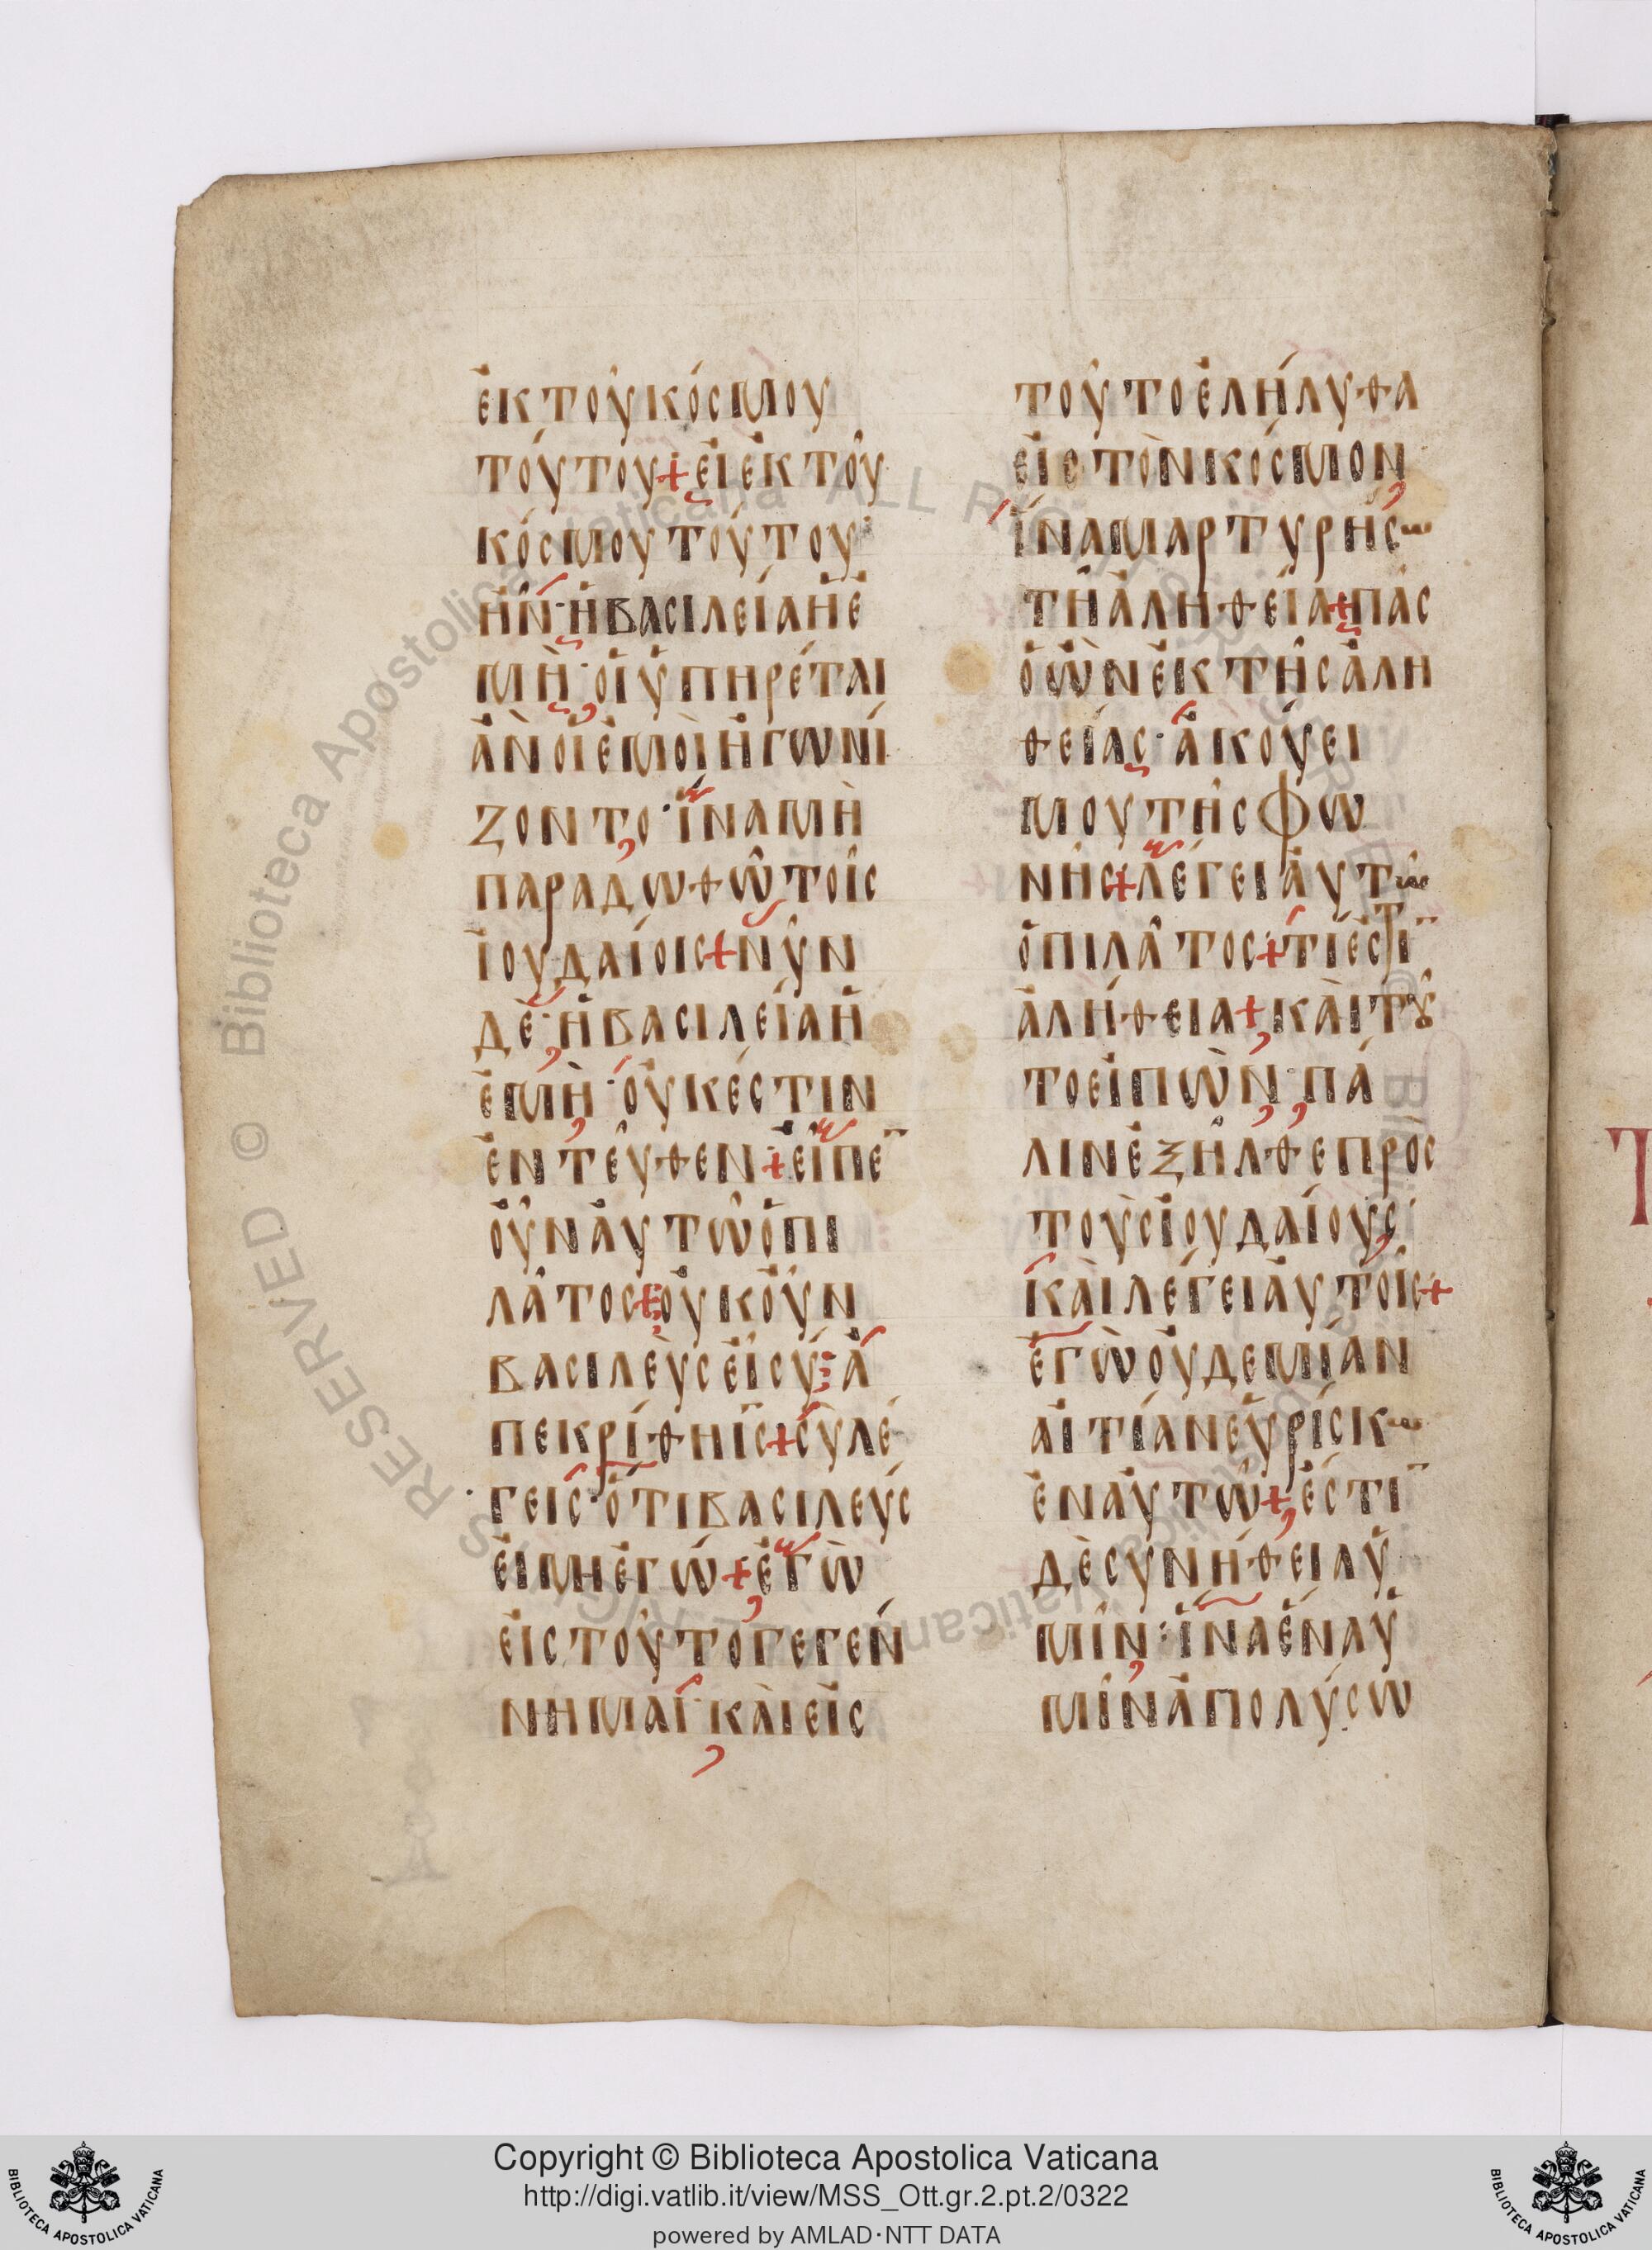 ἐκ τοῦ κόσμου
τούτου + εἰ ἐκ τοῦ
κόσμου τούτου
ἦν· ἡ βασιλεία ἡ ἐ
μὴ· οἱ ὑπηρέται
ἂν οἱ ἐμοὶ ἠγωνί
ζοντο· ἵνα μὴ
παραδωθῶ τοῖς
ἰουδαίοις + νῦν
δὲ· ἡ βασιλεία ἡ
ἐμὴ· οὐκ έστιν
ἐντεῦθεν + εἶπε̅
οὖν ἀυτῶ ὁ πι
λᾶτος + οὐκοῦν
βασιλεὺς εἶ σύ: ἀ
πεκρίθη ι̅ς̅ + σὺ λέ
γεις· ὅτι βασιλεύς
εἰμη ἐγώ + ἐγὼ
εἰς τοῦτο γεγέν
νημαι· κὰι εἰς
τοῦτο ἐλήλυθα
εἰς τὸν κόσμον
ἵνα μαρτυρήσω
τῆ ἀληθεία + πᾶς
ὁ ὢν ἐκ τῆς ἀλη
θείας· ἀκούει
μου τῆς φω
νῆς + λέγει ἀυτῶ
ὁ πιλᾶτος + τί ἐστι̅
ἀλήθεια + κὰι τȣ͂
το εἰπὼν· πά
λιν ἐξῆλθε προς
τοὺς ἰουδαίους·
κὰι λέγει ἀυτοῖς +
ἐγὼ οὐδεμίαν
αἰτίαν ἑυρίσκω
ἐν ἀυτῶ + ἐστι̅
δὲ συνήθεια ὑ
μῖν· ἵνα ἕνα ὑ
μῖν ἀπολύσω
Copyright © Biblioteca Apostolica Vaticana
http://digi.vatlib.it/view/MSS_Ott.gr.2.pt.2/0322
powered by AMLAD·NTT DATA
BIBLIOTECA APOSTOLICA VATICANA
BIBLIOTECA APOSTOLICA VATICANA